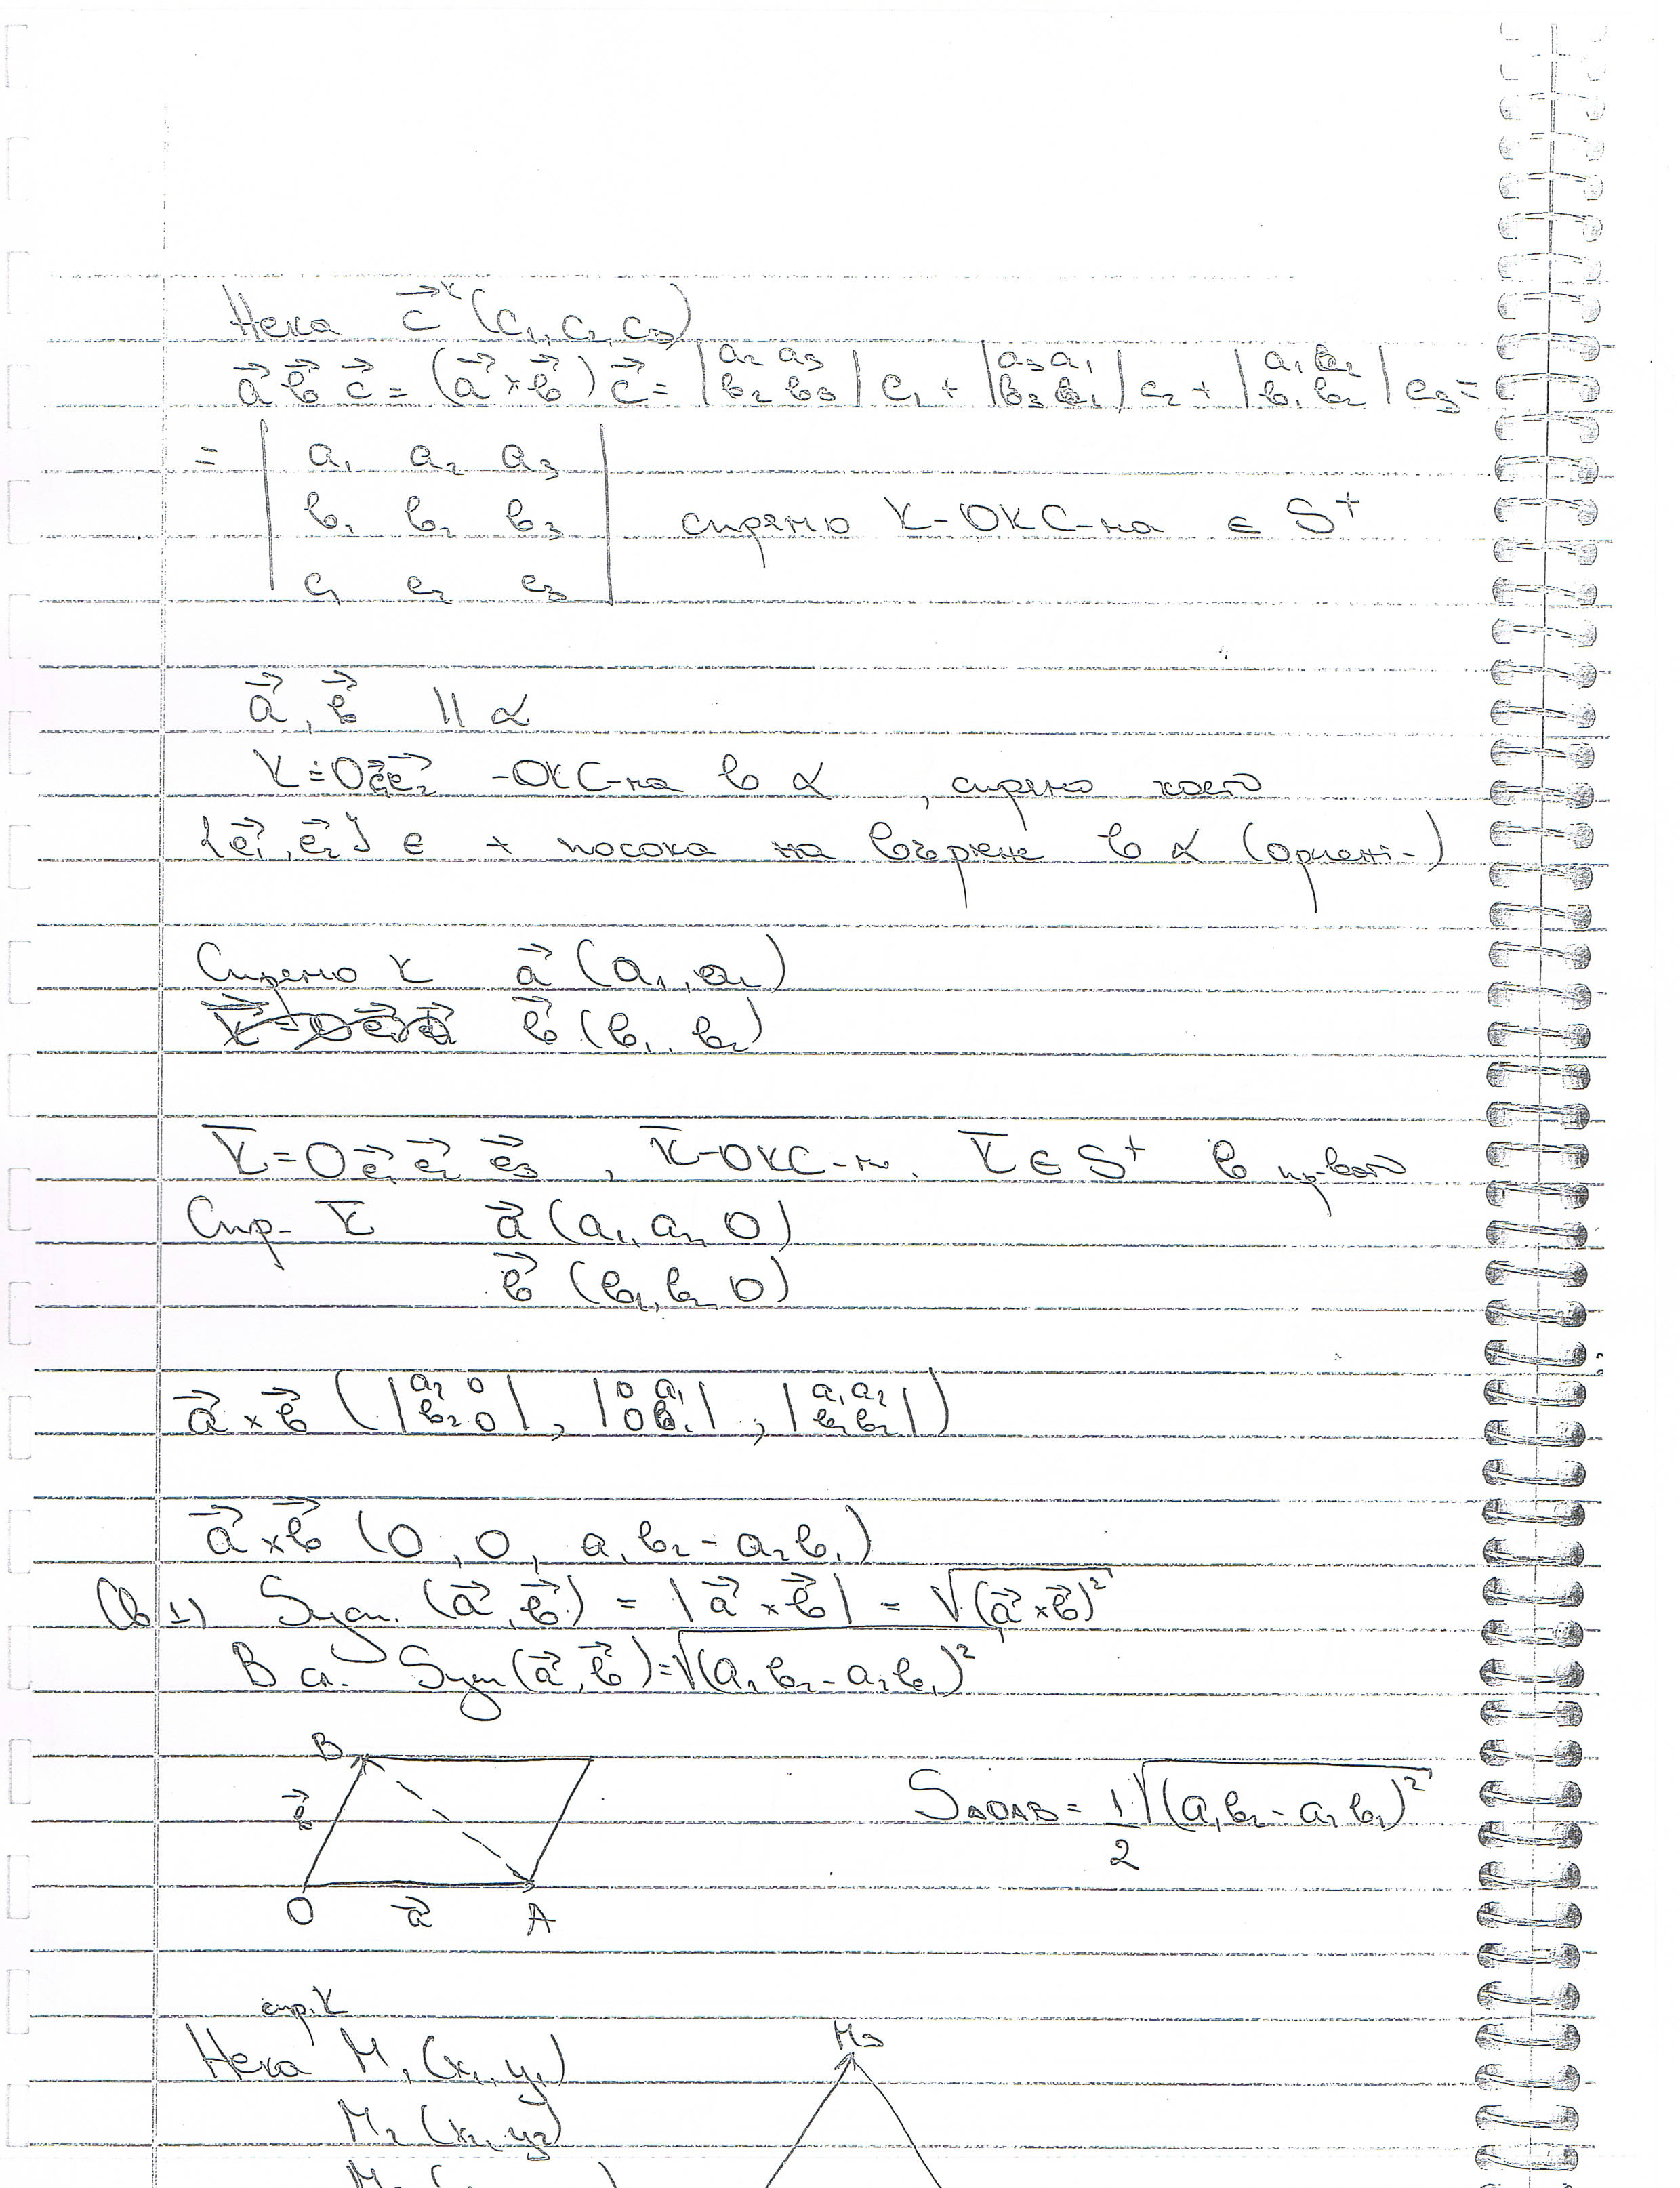 Нека c⃗ᴷ (c₁, c₂, c₃)
a⃗ b⃗ c⃗ = (a⃗ × b⃗) c⃗ = |a₂ a₃; b₂ b₃| c₁ + |a₃ a₁; b₃ b₁| c₂ + |a₁ a₂; b₁ b₂| c₃ =
= | a₁ a₂ a₃
b₁ b₂ b₃
c₁ c₂ c₃ | спрямо K-ОКС-ма ∈ S⁺
a⃗, b⃗ || α
K = Oe⃗₁e⃗₂ - ОКС-ма в α, спрямо която
{e⃗₁, e⃗₂} ∈ + посока на въртене в α (ориент-)
Спрямо K a⃗ (a₁, a₂)
b⃗ (b₁, b₂)
K̅ = O e⃗₁ e⃗₂ e⃗₃, K̅-ОКС-ма. K̅ ∈ S⁺ в пр-вото
Спр. K̅ a⃗ (a₁, a₂, 0)
b⃗ (b₁, b₂, 0)
a⃗ × b⃗ (|a₂ 0; b₂ 0|, |0 a₁; 0 b₁|, |a₁ a₂; b₁ b₂|)
a⃗ × b⃗ (0, 0, a₁b₂ - a₂b₁)
Св 1) Sусп. (a⃗, b⃗) = |a⃗ × b⃗| = √(a⃗ × b⃗)²
В сл. Sусп (a⃗, b⃗) = √(a₁b₂ - a₂b₁)²
B
b⃗
O a⃗ A
S△OAB = 1/2 √(a₁b₂ - a₂b₁)²
спр. K
Нека M₁ (x₁, y₁)
M₂ (x₂, y₂)
M₃